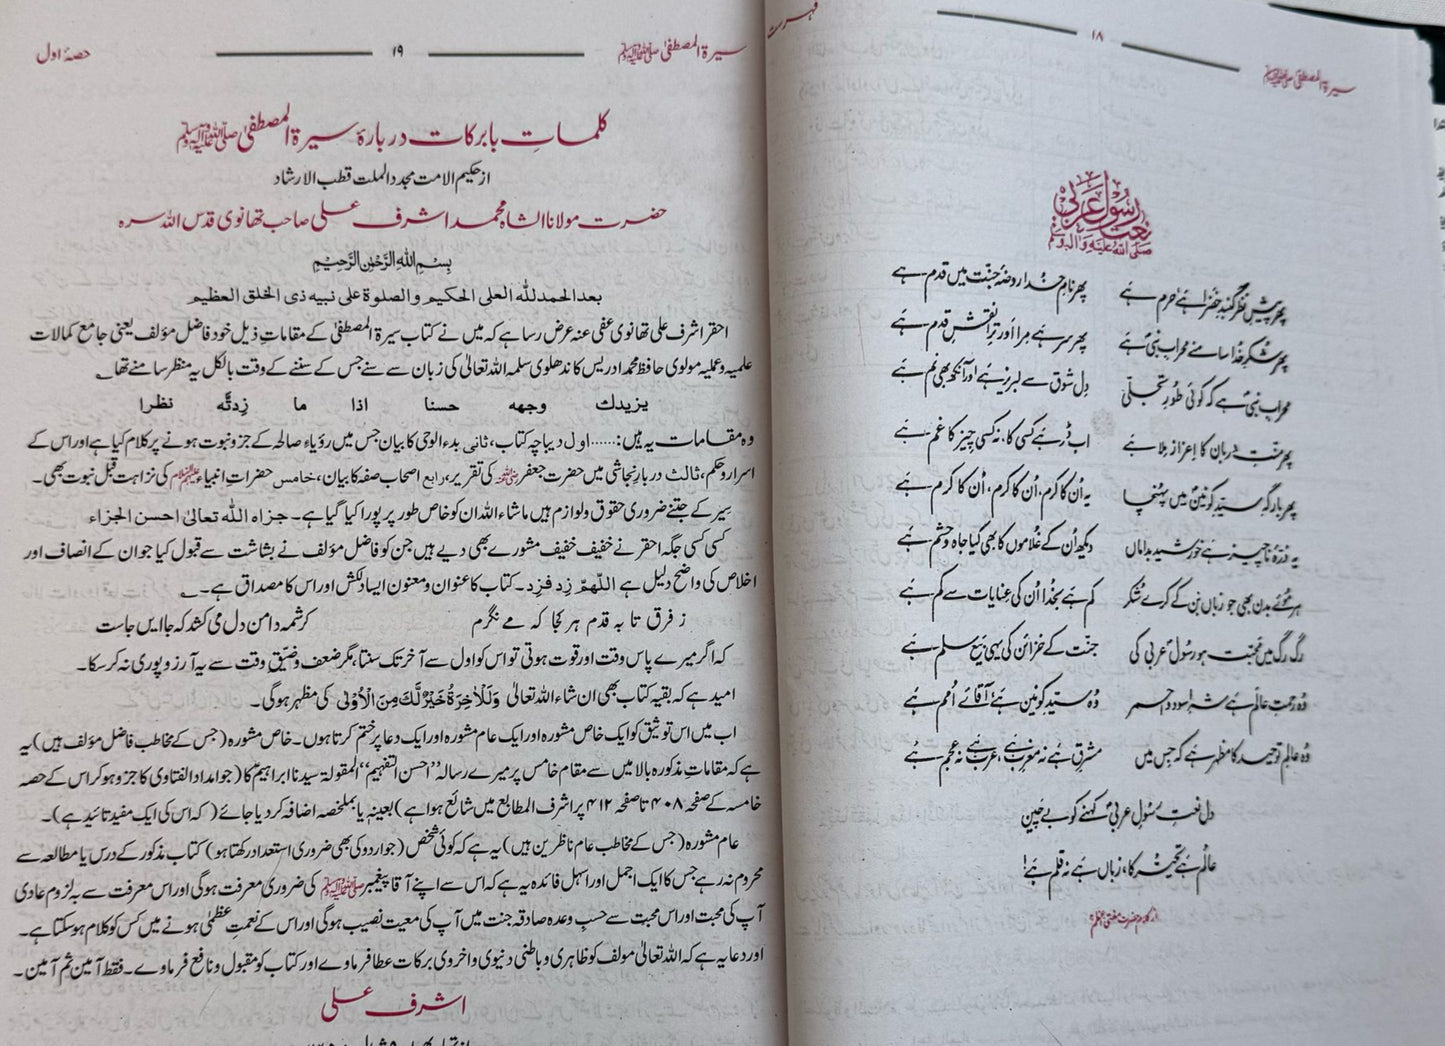 سیرۃ المصطفیٰ ﷺ
۱۸
فہرست
نعت رسول عربی
صلی اللہ علیہ وآلہ وسلم
پھر پیشِ نظر گنبدِ خضرا ہے حرم ہے
پھر نامِ خدا روضۂ جنّت میں قدم ہے
پھر شکرِ خدا سامنے محرابِ نبیؐ ہے
پھر سر ہے مرا اور ترا نقشِ قدم ہے
محرابِ نبیؐ ہے کہ کوئی طُورِ تجلّی
دِل شوق سے لبریز ہے اور آنکھ بھی نم ہے
پھر منّتِ دربان کا اعزاز ملا ہے
اب ڈر ہے کسی کا، نہ کسی چیز کا غم ہے
پھر بارگہِ سیّدِ کونینؐ میں پہنچا
یہ اُن کا کرم، اُن کا کرم، اُن کا کرم ہے
یہ ذرّۂ ناچیز ہے خورشید بداماں
دیکھ اُن کے غُلاموں کا بھی کیا جاہ و حشم ہے
ہر مُوئے بدن بھی جو زباں بن کے کرے شکر
کم ہے بخدا اُن کی عنایات سے کم ہے
رگ رگ میں محبّت ہو رسُولِ عربیؐ کی
جنّت کے خزائن کی یہی بیعِ سلم ہے
وُہ رحمتِ عالم ہے شہِ اسود و احمر
وُہ سیّدِ کونین ہے آقائے اُمم ہے
وُہ عالمِ توحید کا مظہر ہے کہ جس میں
مشرق ہے نہ مغرب ہے، عرب ہے نہ عجم ہے
دل نعتِ رسُولِ عربیؐ کہنے کو بے چین
عالم ہے تحیّر کا، زباں ہے نہ قلم ہے!
سیرۃ المصطفیٰ ﷺ
۱۹
حصۂ اول
کلماتِ بابرکات دربارۂ سیرۃ المصطفیٰ ﷺ
از حکیم الامت مجدد الملت قطب الارشاد
حضرت مولانا الشاہ محمد اشرف علی صاحب تھانوی قدس اللہ سرہ
بِسْمِ اللهِ الرَّحْمٰنِ الرَّحِيْمِ
بعد الحمد لله العلى الحكيم والصلوة على نبيه ذى الخلق العظيم
احقر اشرف علی تھانوی عفی عنہ عرض رسا ہے کہ میں نے کتاب سیرۃ المصطفیٰ کے مقاماتِ ذیل خود فاضل مؤلف یعنی جامع کمالات
علمیہ و عملیہ مولوی حافظ محمد ادریس کاندھلوی سلمہ اللہ تعالیٰ کی زبان سے سنے جس کے سننے کے وقت بالکل یہ منظر سامنے تھا ؎
يزيدك وجهه حسنا اذا ما زِدتَّه نظرا
وہ مقامات یہ ہیں:...... اول دیباچہ کتاب، ثانی بدء الوحی کا بیان جس میں رؤیاء صالحہ کے جزو نبوت ہونے پر کلام کیا ہے اور اس کے
اسرار و حکم، ثالث دربار نجاشی میں حضرت جعفر رضی اللہ عنہ کی تقریر، رابع اصحاب صفہ کا بیان، خامس حضراتِ انبیاء علیہم السلام کی نزاہت قبل نبوت بھی۔
سِیَر کے جتنے ضروری حقوق ولوازم ہیں ماشاء اللہ ان کو خاص طور پر پورا کیا گیا ہے۔ جزاہ اللہ تعالیٰ احسن الجزاء
کسی کسی جگہ احقر نے خفیف خفیف مشورے بھی دیے ہیں جن کو فاضل مؤلف نے بشاشت سے قبول کیا جو ان کے انصاف اور
اخلاص کی واضح دلیل ہے اللّٰهمّ زِد فزِد۔ کتاب کا عنوان و معنون ایسا دلکش اور اس کا مصداق ہے۔ ؎
ز فرق تا بہ قدم ہر کجا کہ مے نگرم
کرشمہ دامن دل می کشد کہ جا ایں جاست
کہ اگر میرے پاس وقت اور قوت ہوتی تو اس کو اول سے آخر تک سنتا، مگر ضعف و ضیقِ وقت سے یہ آرزو پوری نہ کر سکا۔
امید ہے کہ بقیہ کتاب بھی ان شاء اللہ تعالیٰ وَلَلْاٰخِرَةُ خَيْرٌ لَّكَ مِنَ الْاُوْلٰى کی مظہر ہوگی۔
اب میں اس توثیق کو ایک خاص مشورہ اور ایک عام مشورہ اور ایک دعا پر ختم کرتا ہوں۔ خاص مشورہ (جس کے مخاطب فاضل مؤلف ہیں) یہ
ہے کہ مقاماتِ مذکورہ بالا میں سے مقام خامس پر میرے رسالہ "احسن التفہیم" المقولۃ سیدنا ابراہیمؑ کا (جو امداد الفتاوی کا جزو ہو کر اس کے حصہ
خامسہ کے صفحہ ۴۰۸ تا صفحہ ۴۱۲ پر اشرف المطابع میں شائع ہوا ہے) بعینہٖ یا بملخصہ اضافہ کر دیا جائے (کہ اس کی ایک مفید تائید ہے)۔
عام مشورہ (جس کے مخاطب عام ناظرین ہیں) یہ ہے کہ کوئی شخص (جو اردو کی بھی ضروری استعداد رکھتا ہو) کتاب مذکور کے درس یا مطالعہ سے
محروم نہ رہے جس کا ایک اجمل اور اسہل فائدہ یہ ہے کہ اس سے اپنے آقا پیغمبر ﷺ کی ضروری معرفت ہوگی اور اس معرفت سے بہ لزوم عادی
آپ کی محبت اور اس محبت سے حسبِ وعدہ صادقہ جنت میں آپ کی معیت نصیب ہوگی اور اس کے نعمتِ عظمٰی ہونے میں کس کو کلام ہو سکتا ہے۔
اور دعا یہ ہے کہ اللہ تعالیٰ مولف کو ظاہری و باطنی دنیوی و اخروی برکات عطا فرماوے اور کتاب کو مقبول و نافع فرماوے۔ فقط آمین ثم آمین۔
اشرف علی